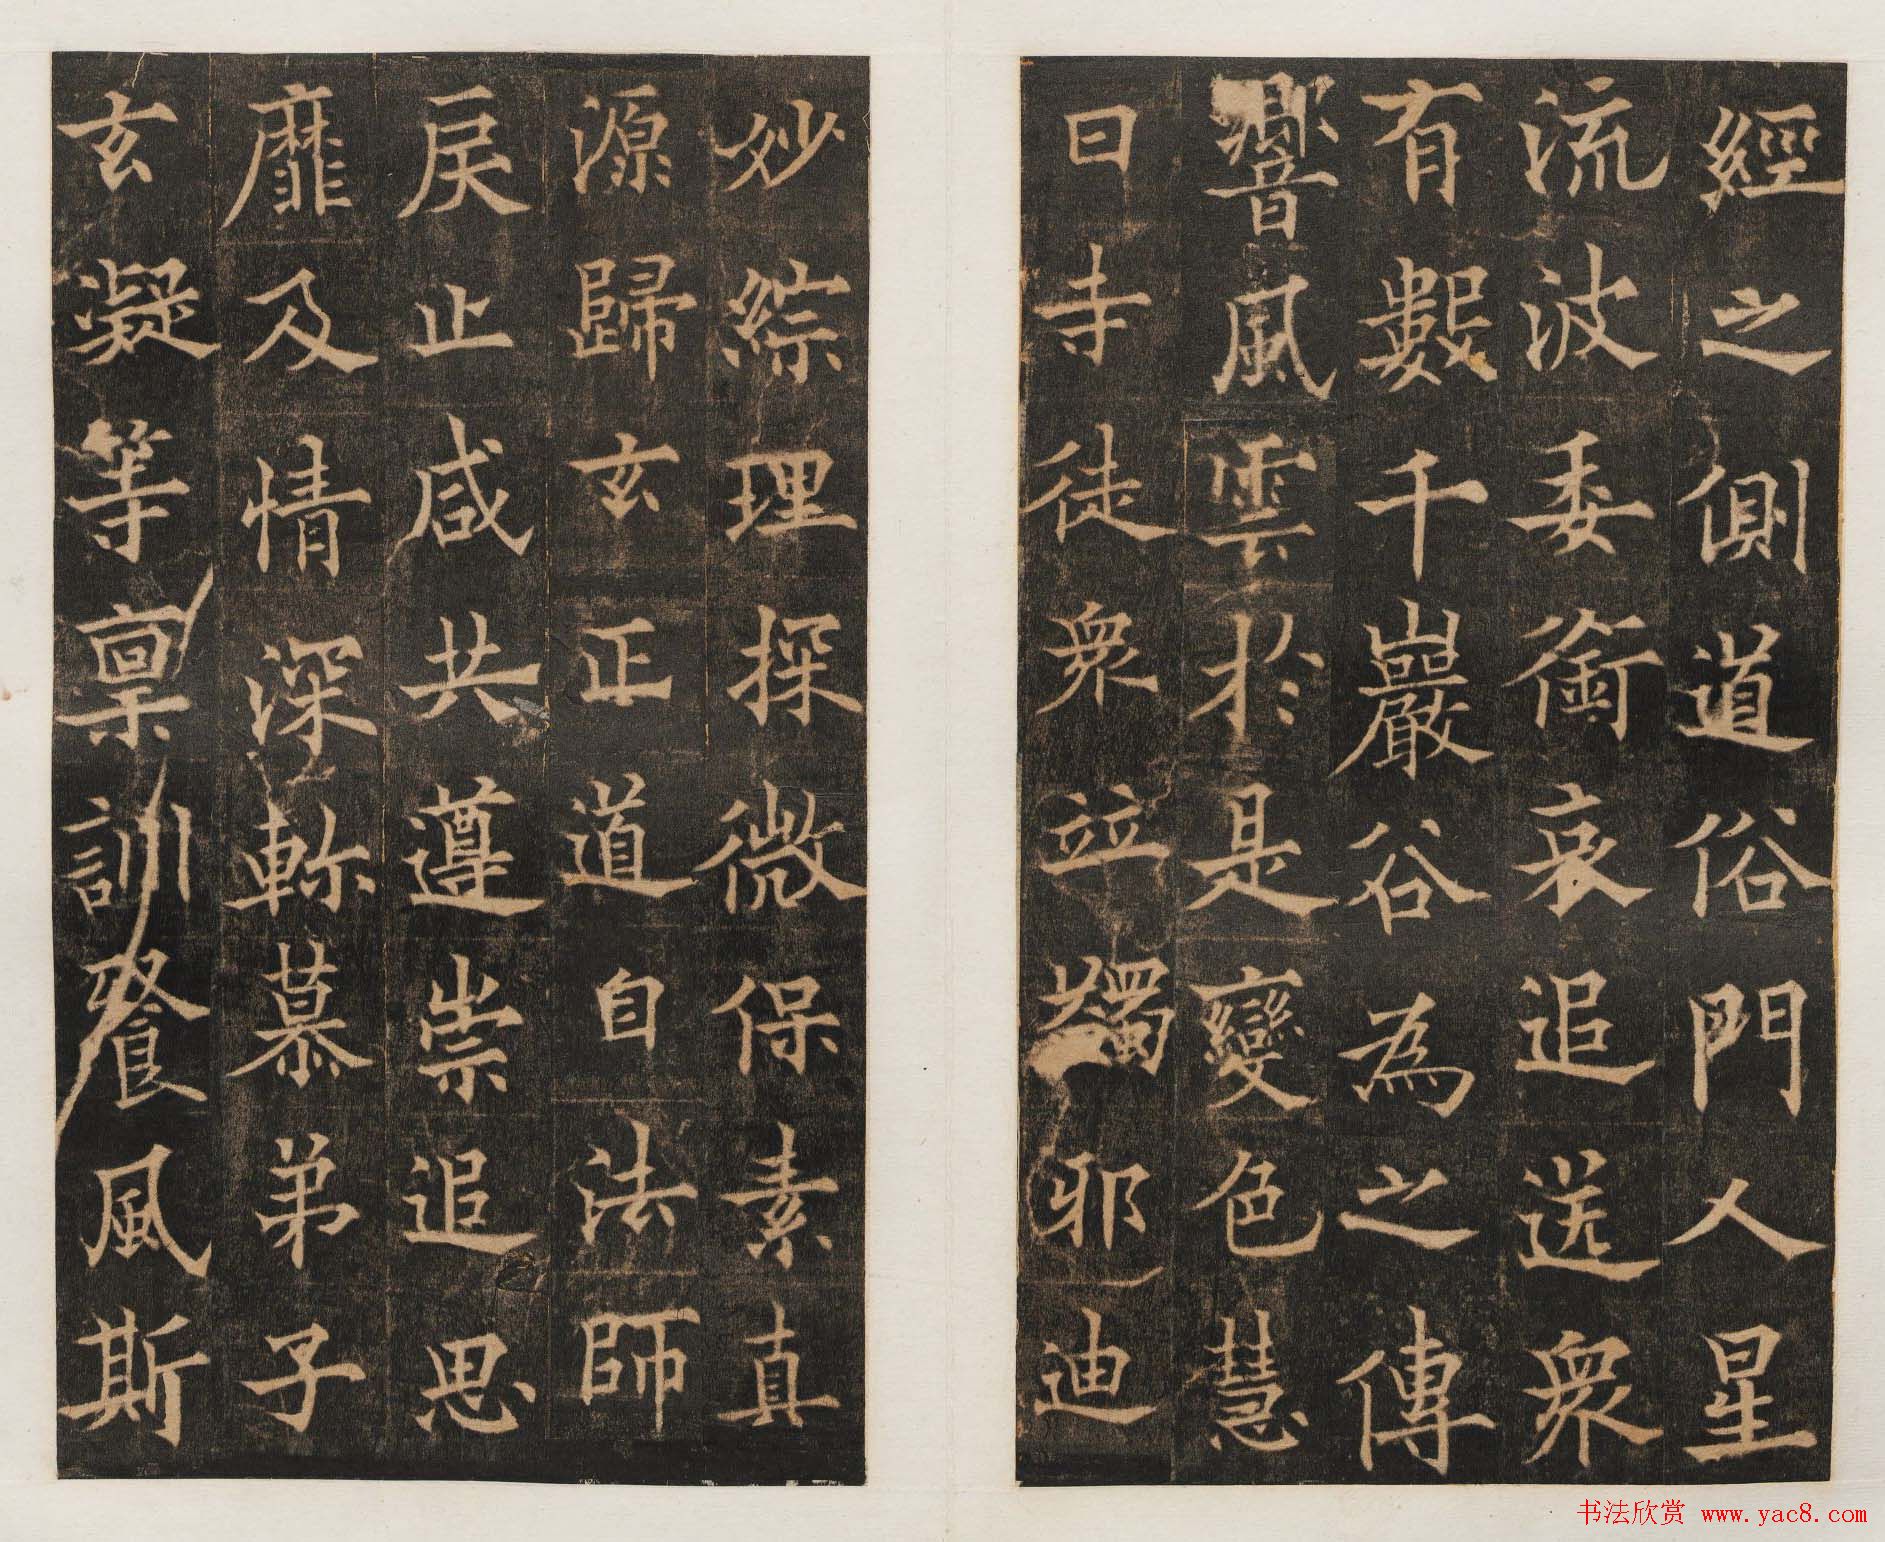 經之側道俗門人星
流波委銜哀追送衆
有數千巖谷為之傳
響風雲於是變色慧
日寺徒衆竝蠲耶迪
妙綜理探微保素真
源歸玄正道自法師
戾止咸共遵崇追思
靡及情深軫慕弟子
玄凝等稟訓餐風斯
书法欣赏 www.yac8.com